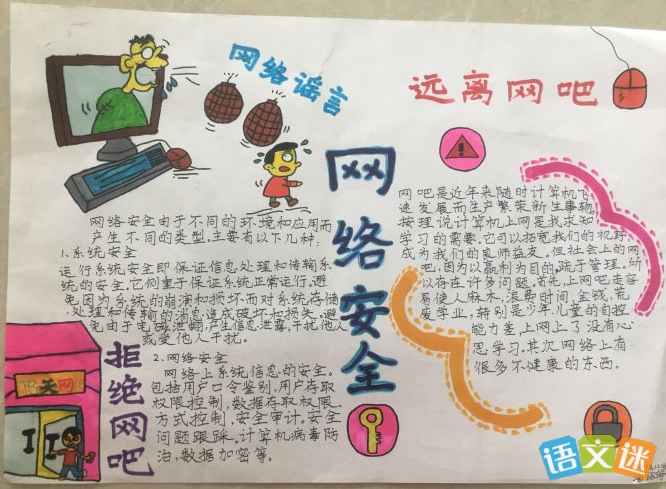 网络谣言
远离网吧
网络安全
网络安全由于不同的环境和应用而
产生不同的类型。主要有以下几种：
1.系统安全
运行系统安全即保证信息处理和传输系
统的安全。它侧重于保证系统正常运行。避
免因为系统的崩溃和损坏而对系统存储
、处理和传输的消息造成破坏和损失。避
免由于电磁泄翻，产生信息泄露，干扰他人
或受他人干扰。
2.网络安全
网络上系统信息的安全。
包括用户口令鉴别，用户存取
权限控制，数据存取权限、
方式控制，安全审计。安全
问题跟踩。计算机病毒防
治，数据加密等。
网吧是近年来随时计算机飞
速发展而生产繁荣新生事物。
按理说计算机上网是我求知
学习的需要。它可以拓宽我们的视野，
成为我们的良师益友。但社会上的网
吧，因为以赢利为目的，疏于管理。所
以存在许多问题。首先，上网吧走容
易使人麻木，浪费时间，金钱，荒
废学业，特别是少年儿童的自控
能力差，上网上了没有心
思学习。其次网络上有
很多不健康的东西。
拒绝网吧
天网
语文迷